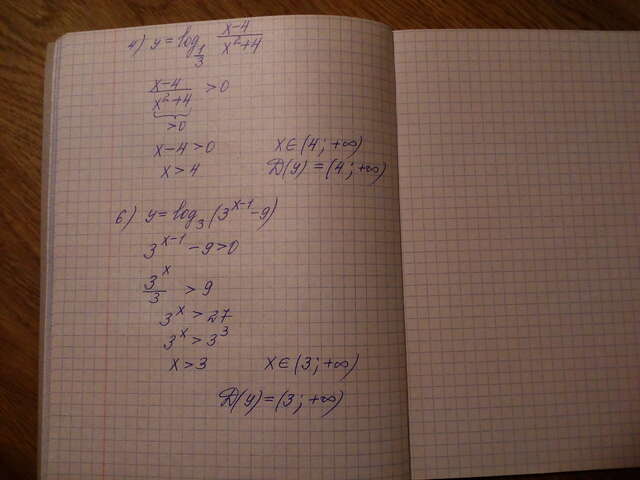 4) y = log_{1/3} \frac{x-4}{x²+4}
\frac{x-4}{x²+4} > 0
>0
x-4>0 x∈(4; +∞)
x>4 D(y) = (4; +∞)
6) y = log₃(3^{x-1}-9)
3^{x-1} - 9>0
\frac{3^x}{3} > 9
3^x > 27
3^x > 3³
x>3 x∈(3; +∞)
D(y) = (3; +∞)